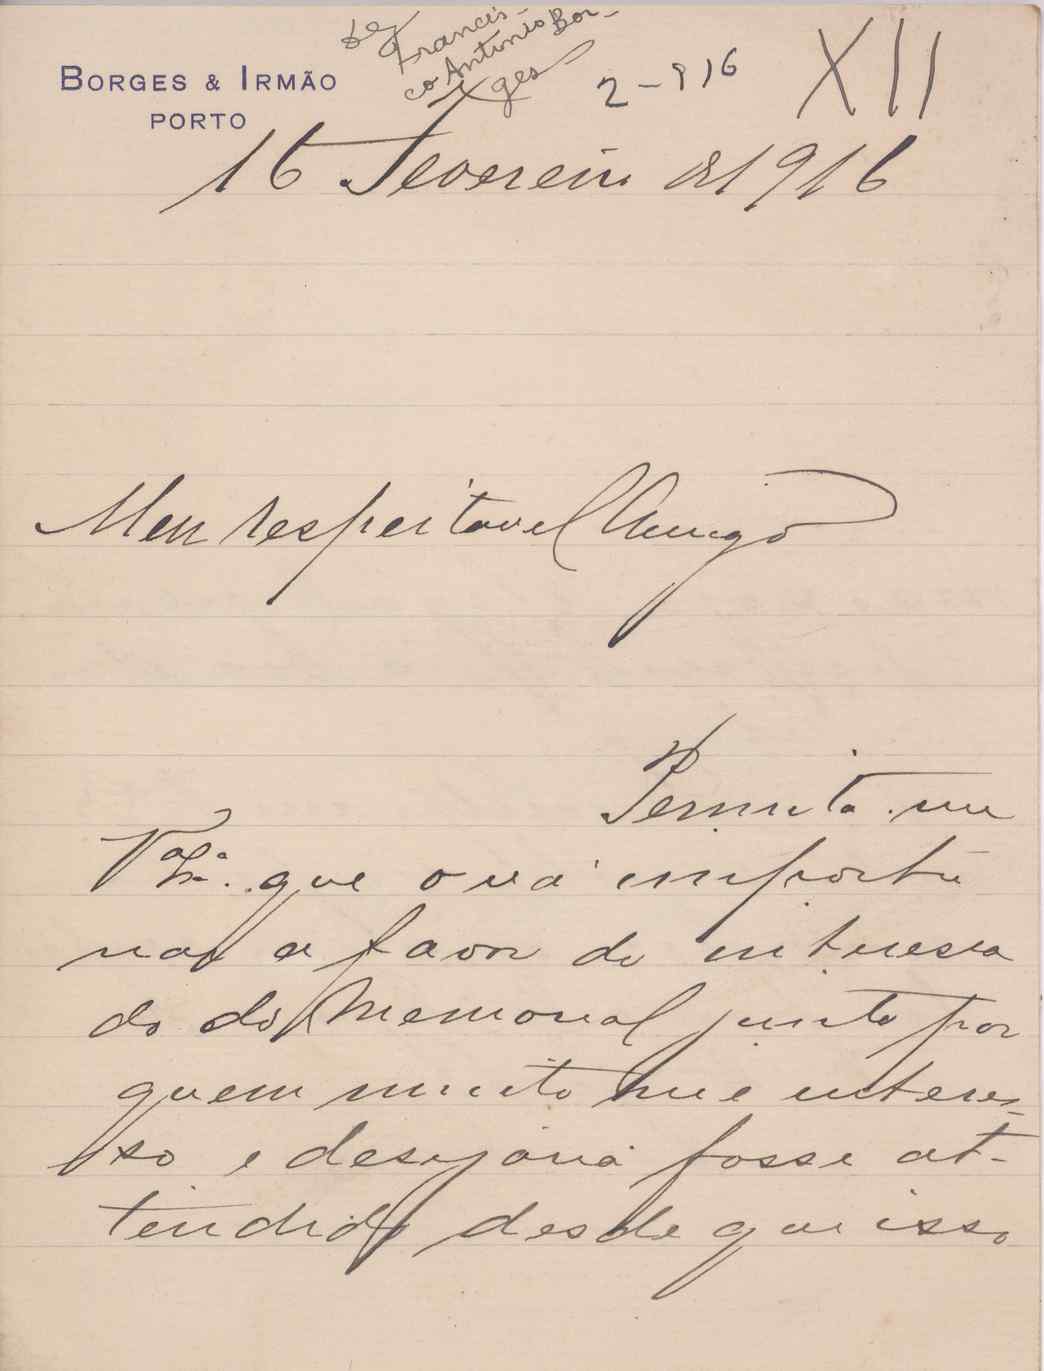 de
Francis-
co Antonio Bor-
ges
2-916
XII
BORGES & IRMÃO
PORTO
16 Fevereiro de 1916
Meu respeitavel Amigo
Permita-me
V.ª Ex.ª que o vá importu
nar a favor do interessa
do do Memorial junto por
quem muito me interes-
so e desejaria fosse at-
tendido desde que isso